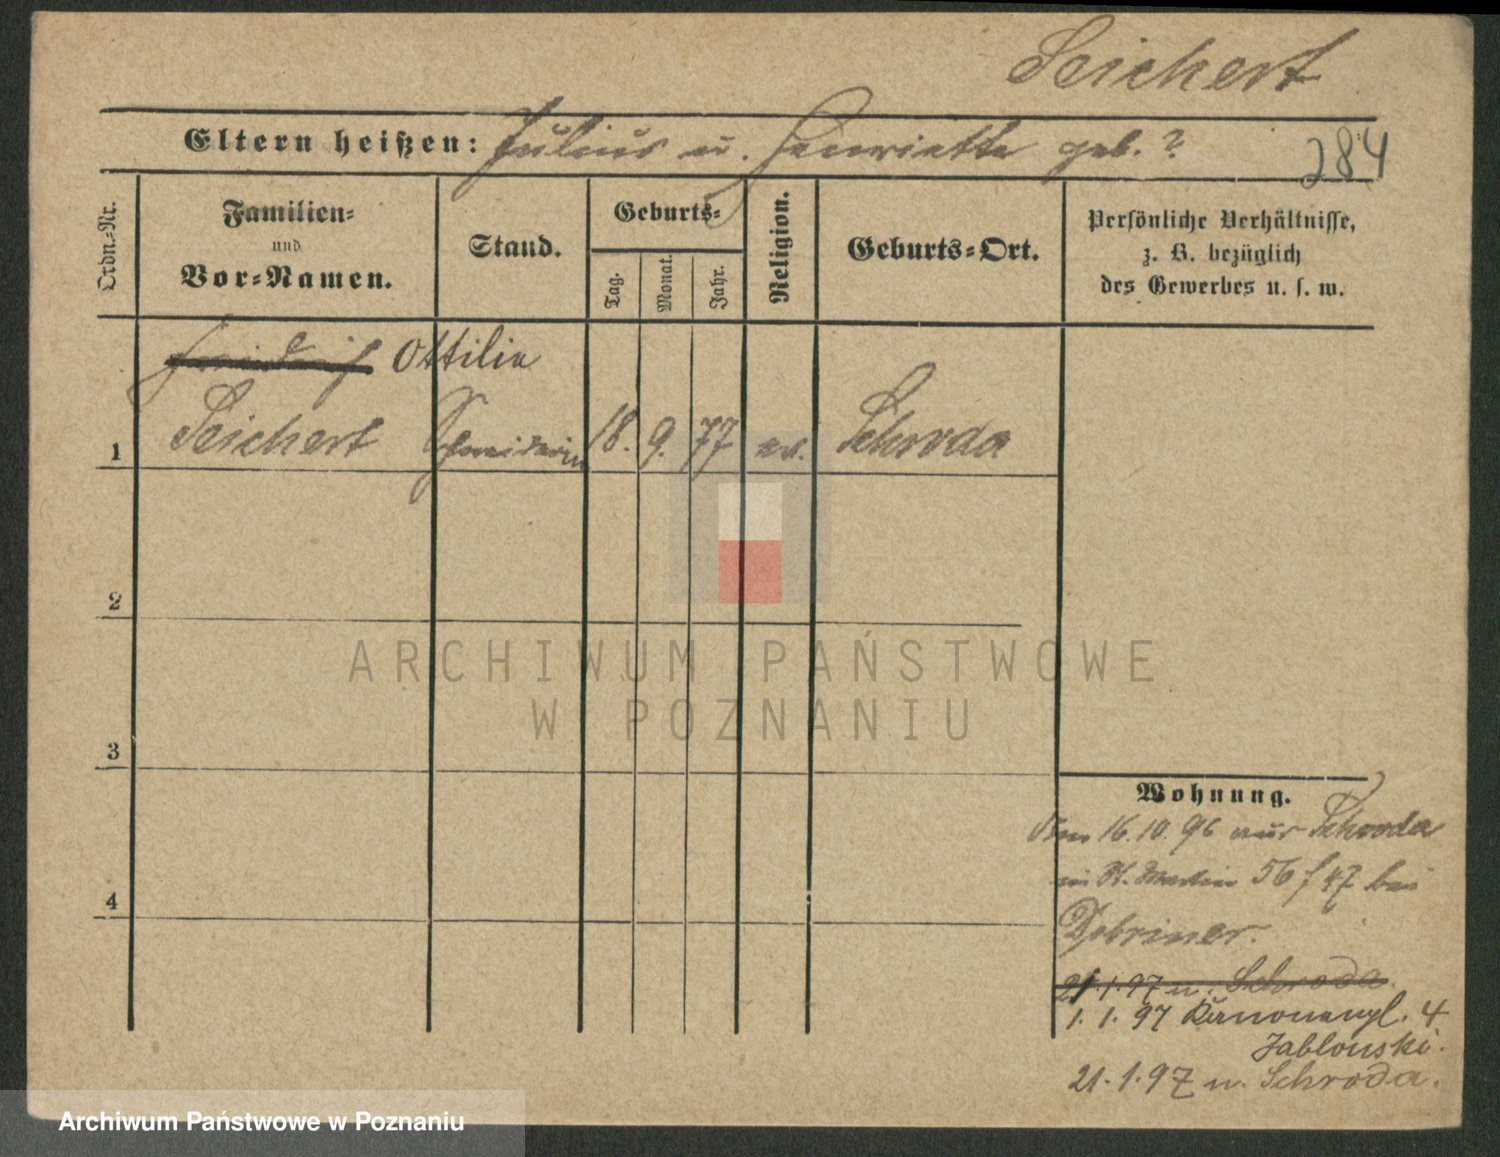 Seichert
Eltern heißen: Julius u. Henriette geb. ?
284
Ordn.-Nr.
Familien-
und
Vor-Namen.
Stand.
Geburts-
Tag.
Monat.
Jahr.
Religion.
Geburts-Ort.
Persönliche Verhältnisse,
z. B. bezüglich
des Gewerbes u. s. w.
Ottilie
1 Seichert Schneiderin 18. 9. 77 ev. Schroda
2
3
4
ARCHIWUM PAŃSTWOWE
W POZNANIU
Wohnung.
16.10.96 aus Schroda
St. Martin 56 47 bei
Dobriner.
21.1.97 n. Schroda.
1. 1. 97 4
Jablonski.
21.1.97 n. Schroda.
Archiwum Państwowe w Poznaniu